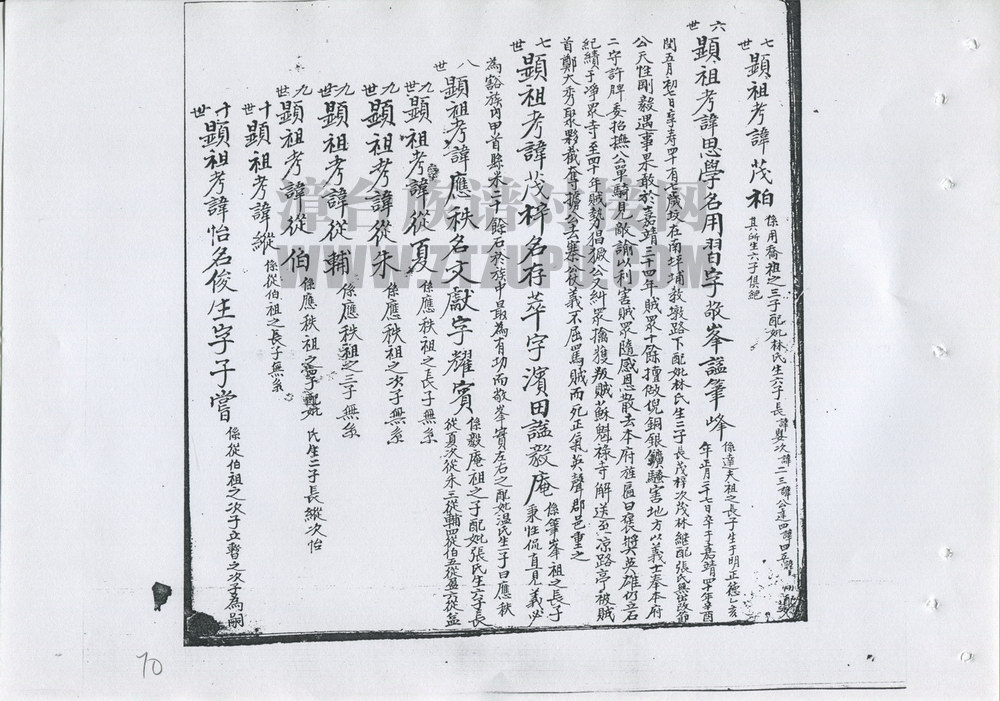 七世 顯祖考諱茂柏
係用喬祖之三子配妣林氏生六子長諱 次諱二三諱公達四諱曰
其所生六子俱絕
六世 顯祖考諱思學名用習字敬峯謚筆峰
係達夫祖之長子生于明正德乙亥
年正月二十七日卒于嘉靖四十年辛酉
閏五月初 日享壽四十有 歲坟在南坪埔教墩路下配妣林氏生二子長茂梓次茂林繼配張氏無出改節
公天性剛毅遇事果敢於嘉靖三十四年賊眾十餘擅 倪銅銀鑛騷害地方以義士奉本府
二守許牌委招撫公單騎見敵諭以利害賊眾隨感恩散去本府旌匾曰褒獎英雄仍立石
紀績于淨眾寺至四十年賊勢猖獗公又糾眾擒獲叛賊蘇魁祿等解送至 涼路亭被賊
首鄭大秀聚夥截奪擄公去寨公從義不屈罵賊而死正氣英聲郡邑重之
七世 顯祖考諱茂梓名存萃字濱田謚毅庵
係筆峯祖之長子
秉性侃直見義必
為豁族丙甲首縣米二千餘石於族中最為有功而敬峯實左右之配妣溫氏生一子曰應秩
八世 顯祖考諱應秩名文獻字耀賓
係毅庵祖之子配妣張氏生六子長
從夏次從朱三從輔四從伯五從 六從
九世 顯祖考諱從夏 係應秩祖之長子無系
九世 顯祖考諱從朱 係應秩祖之次子無系
九世 顯祖考諱從輔 係應秩祖之三子無系
九世 顯祖考諱從伯 係應秩祖之 子配妣 氏生二子長縱次怡
十世 顯祖考諱縱 係從伯祖之長子無系
十世 顯祖考諱怡名俊生字子嘗 係從伯祖之次子立 之次子為嗣
漳台族谱对接网
WWW.ZTZUPU.COM
70